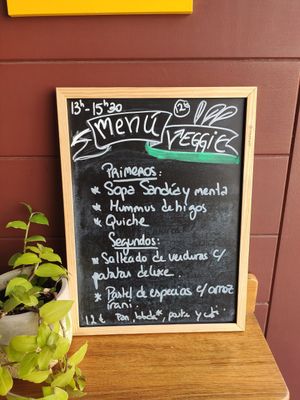 13h-15h30
12€
Menú
Veggie
Primeros:
* Sopa Sandía y menta
* Hummus de higos
* Quiche
Segundos:
* Salteado de verduras c/
patatas deluxe.
* Pastel de especias c/ arroz
irani.
12€ Pan, bebida*, postre y café